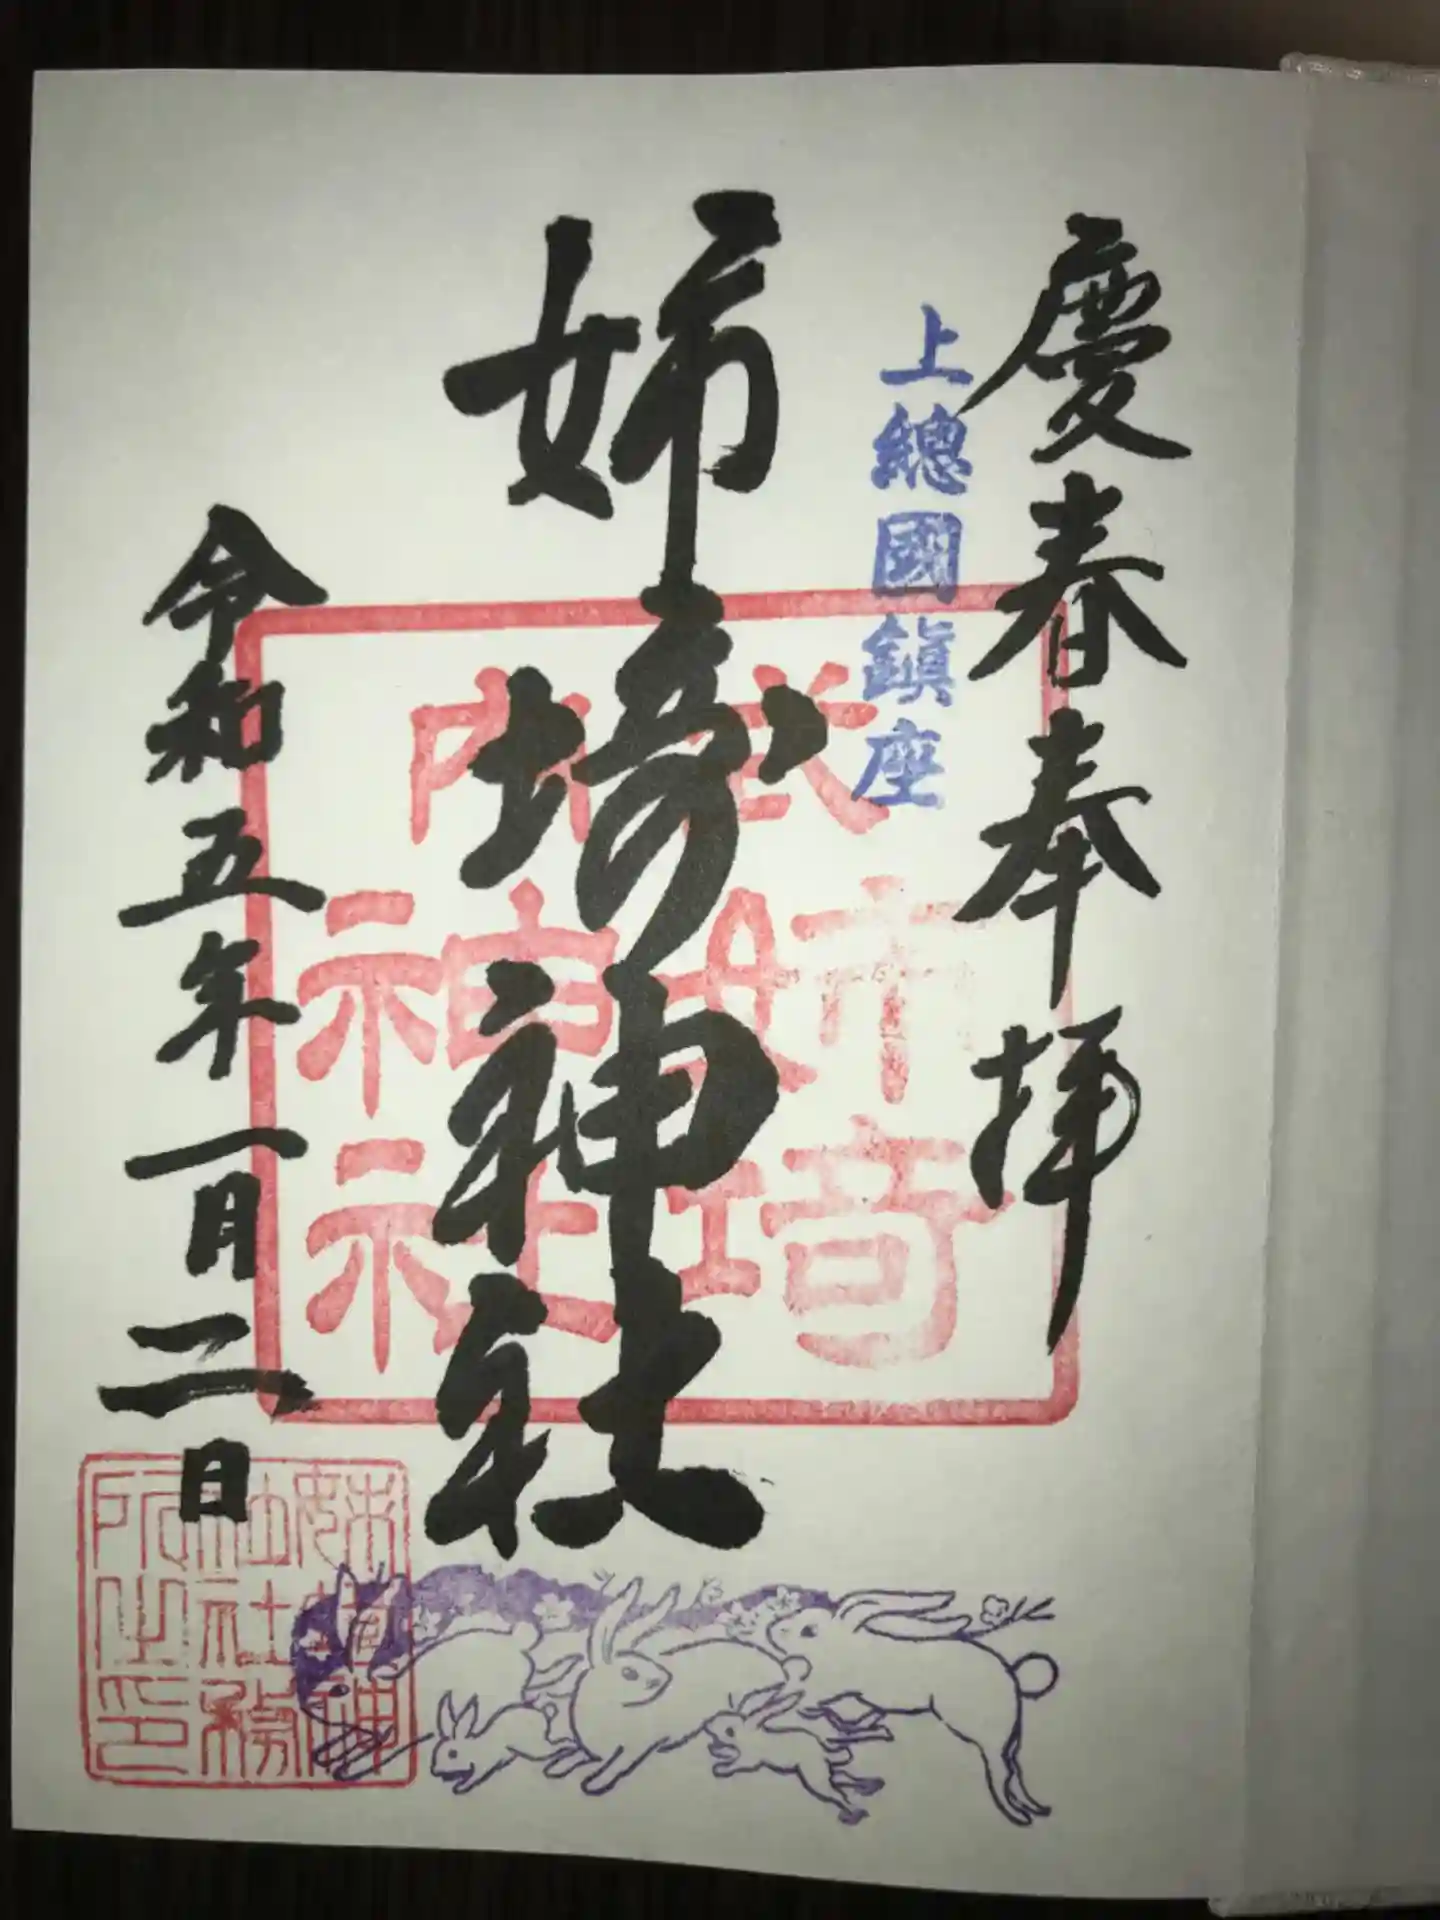 慶春奉拝
上總國鎮座
姉埼神社
式内
姉埼
神社
令和五年一月二日
姉埼神
社社務
所之印